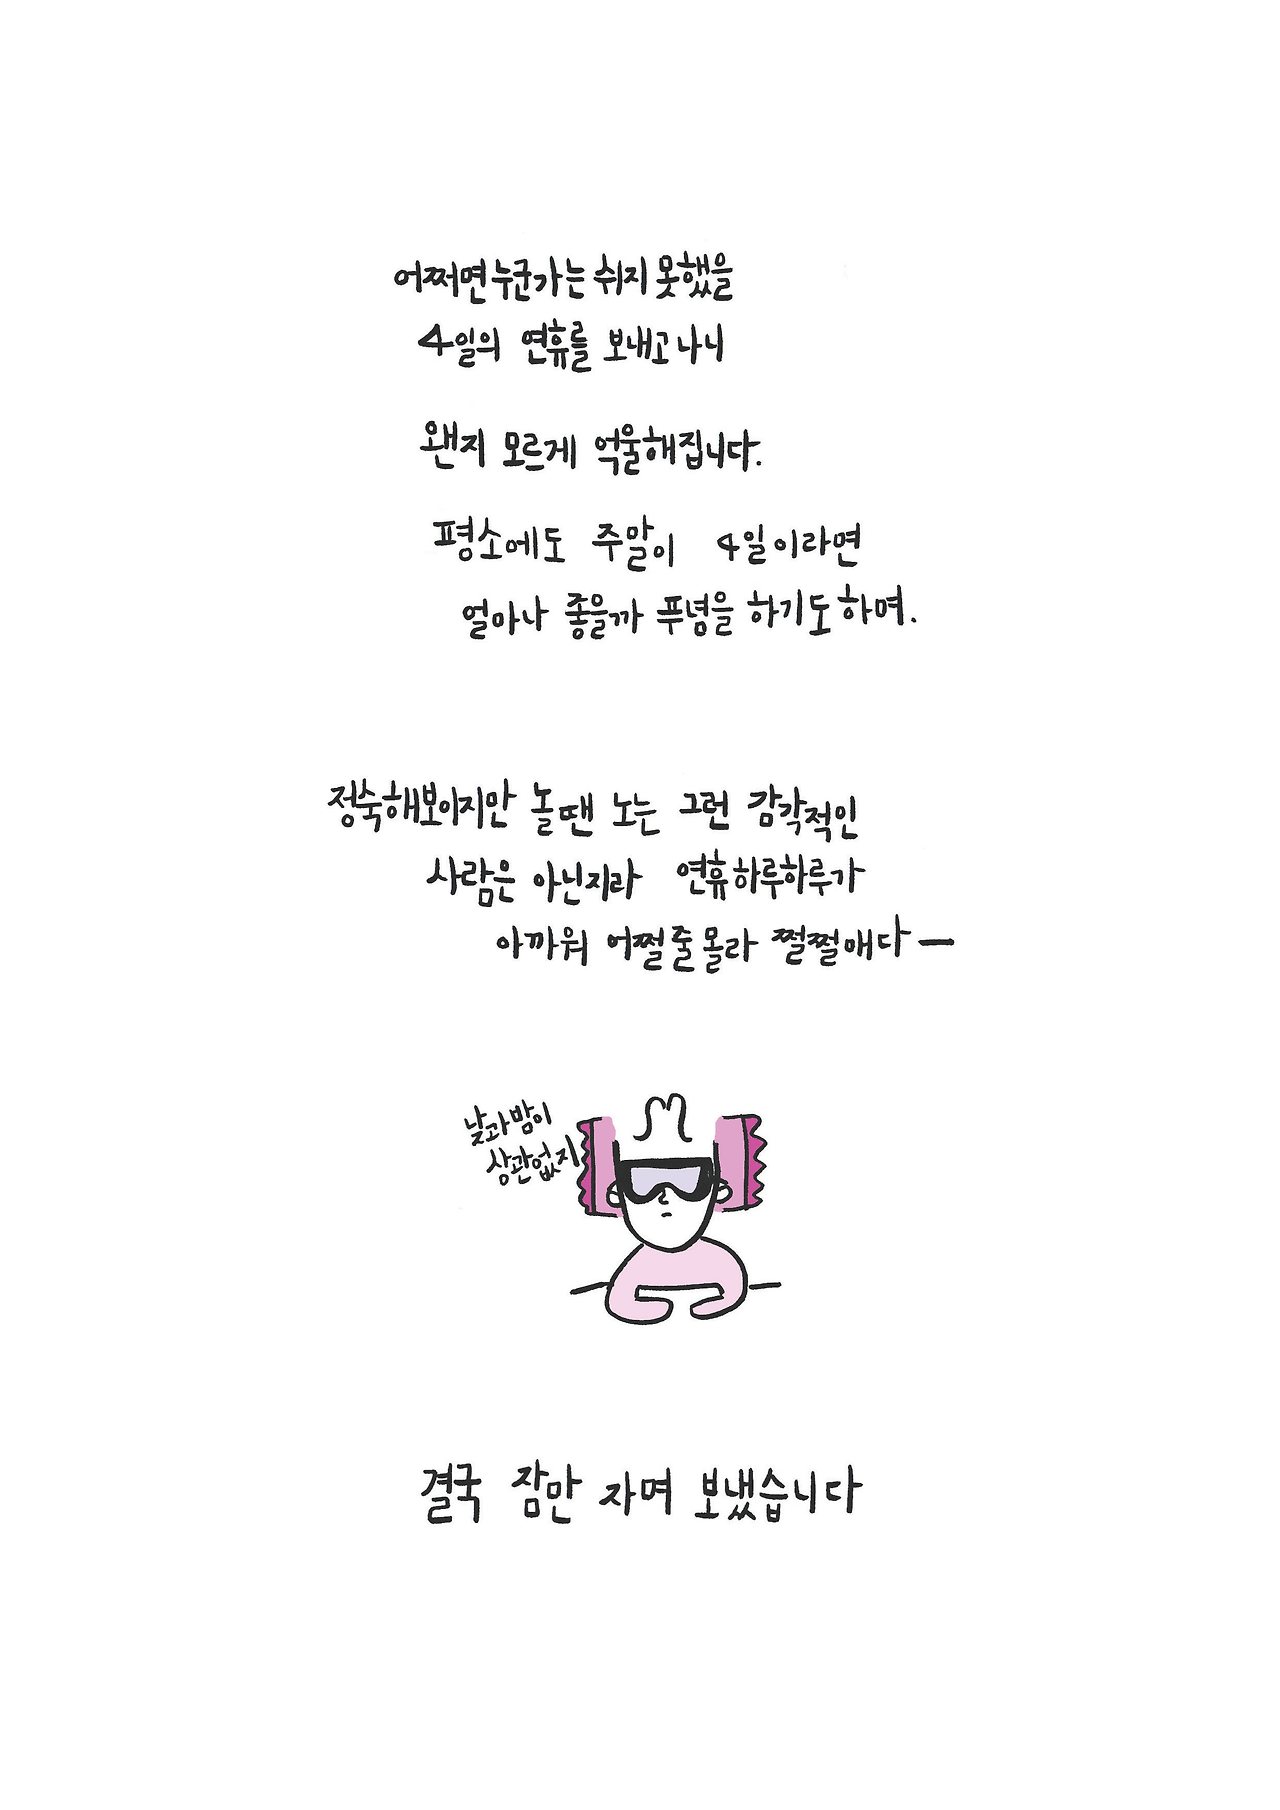 어쩌면 누군가는 쉬지 못했을
4일의 연휴를 보내고 나니
왠지 모르게 억울해집니다.
평소에도 주말이 4일이라면
얼마나 좋을까 푸념을 하기도 하며.
정숙해보이지만 놀땐 노는 그런 감각적인
사람은 아닌지라 연휴 하루하루가
아까워 어쩔줄 몰라 쩔쩔매다 —
낮과 밤이
상관없지
결국 잠만 자며 보냈습니다